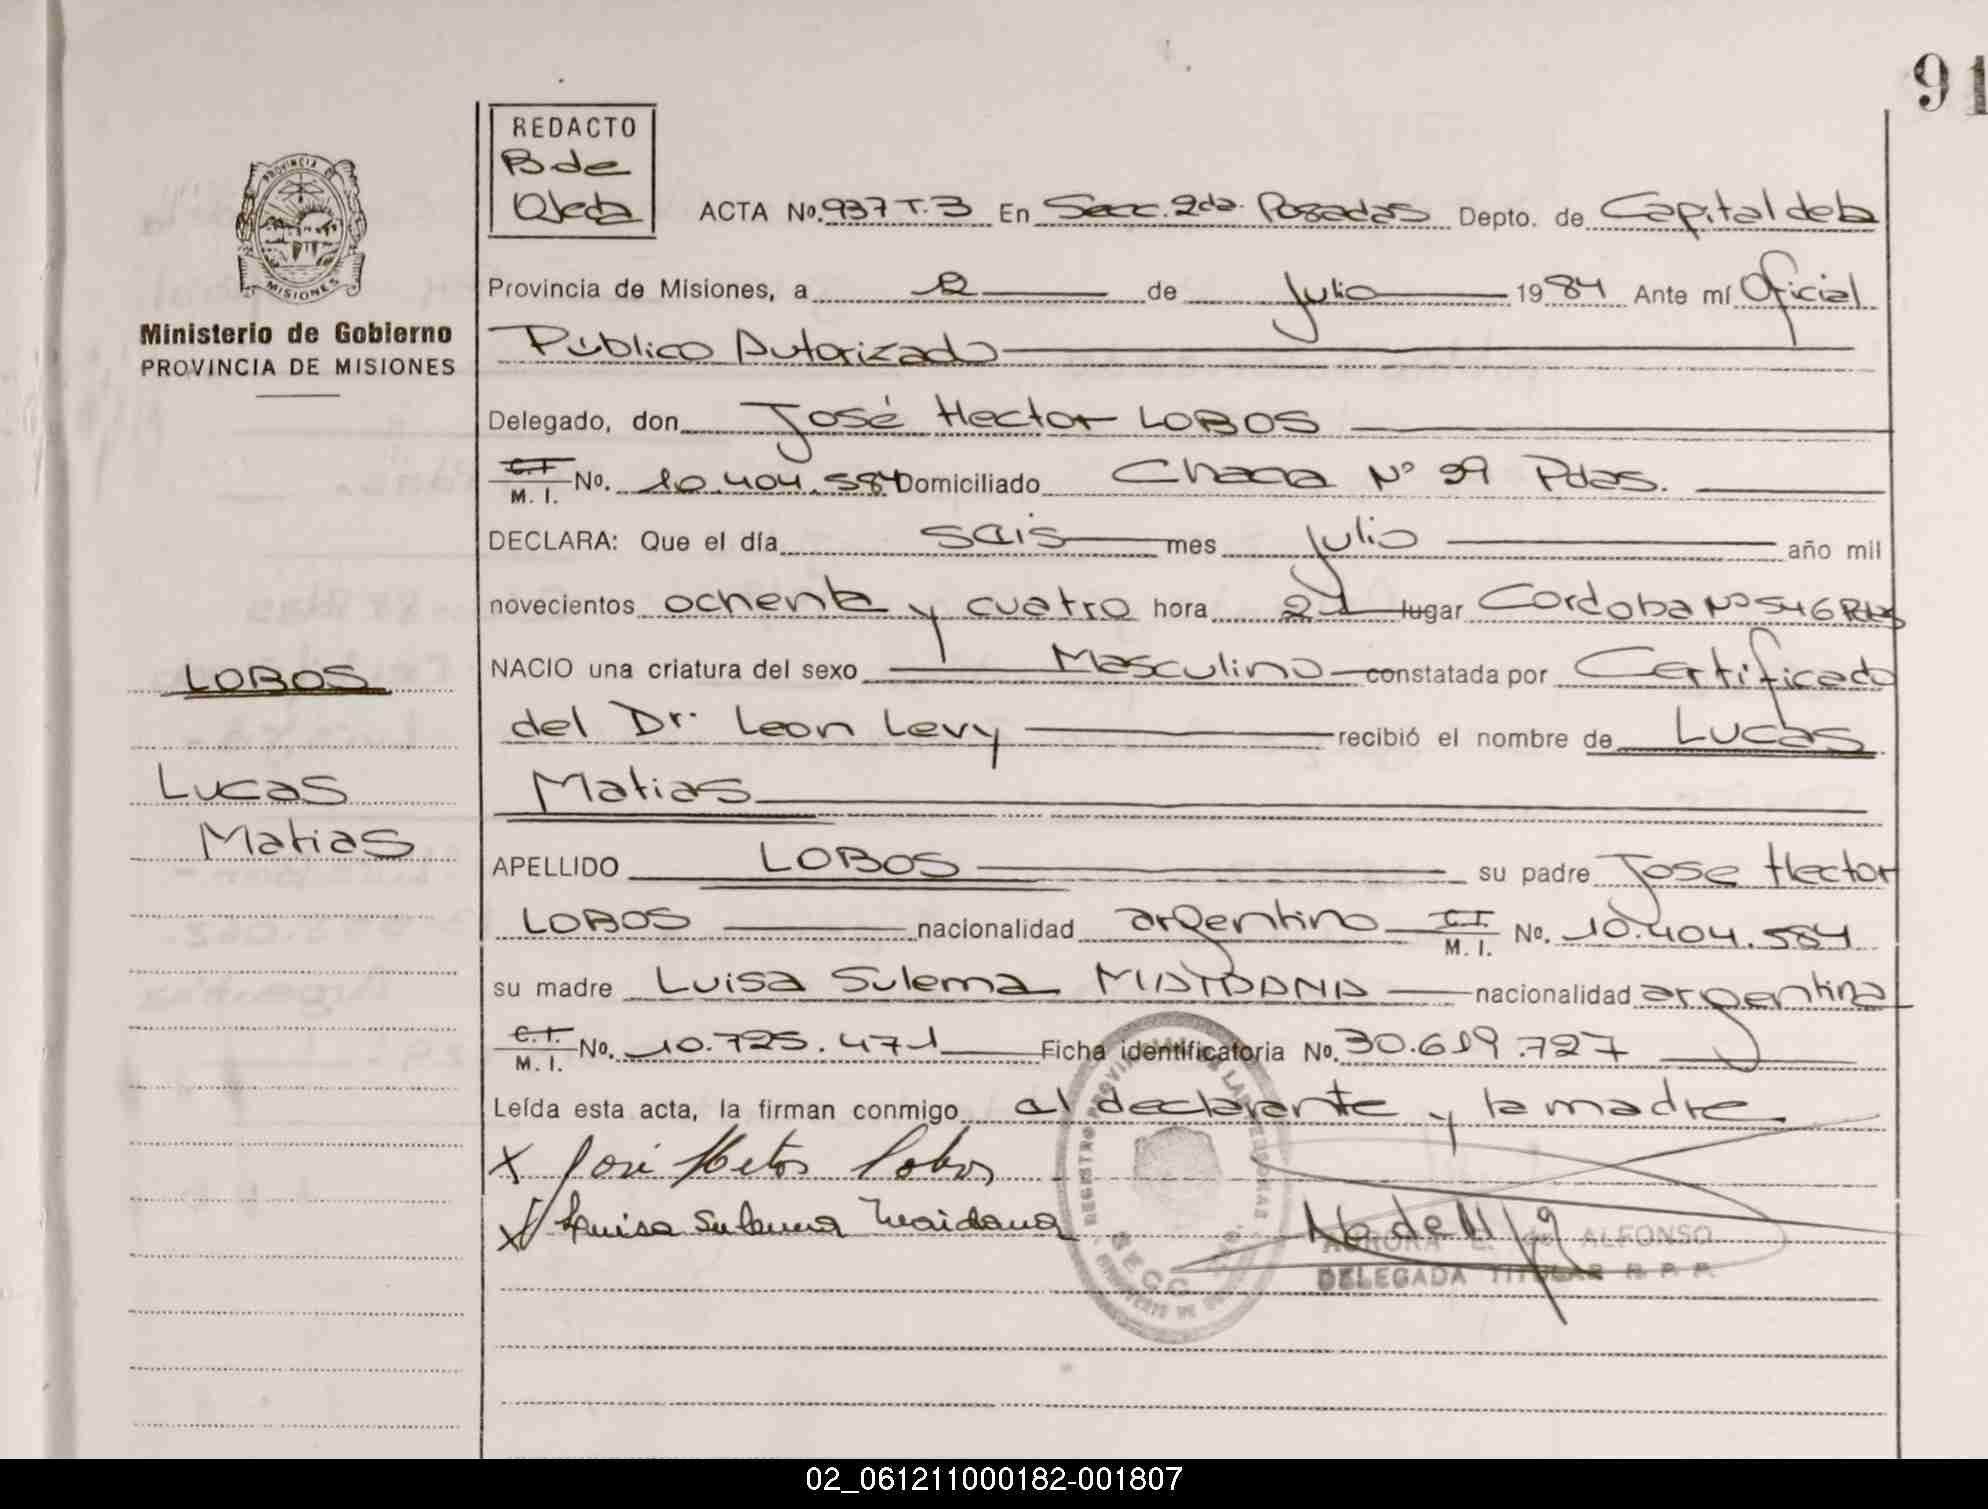 91
REDACTO
B de
Ojeda
ACTA No. 937 T. 3 En Secc. 2da. Posadas Depto. de Capital de la
Provincia de Misiones, a 12 de Julio 1984 Ante mí Oficial
Público Autorizado
Delegado, don José Hector LOBOS
C.I. M. I. No. 10.404.584 Domiciliado Chacra Nº 39 Pdas.
DECLARA: Que el día seis mes julio año mil
novecientos ochenta y cuatro hora 21 lugar Cordoba Nº 546 Pdas
NACIO una criatura del sexo Masculino constatada por Certificado
del Dr. Leon Levy recibió el nombre de Lucas
Matias
APELLIDO LOBOS su padre Jose Hector
LOBOS nacionalidad argentino C.I. M. I. No. 10.404.584
su madre Luisa Sulema MAYDANA nacionalidad argentina
C.I. M. I. No. 10.725.471 Ficha identificatoria No. 30.619.727
Leída esta acta, la firman conmigo al declarante y la madre
X José Hetor Lobos
X Luisa Sulema Maidana
AURORA E. de ALFONSO
DELEGADA TITULAR R. P. P.
REGISTRO PROVINCIAL DE LAS PERSONAS
SECC.
PROVINCIA DE
MISIONES
Ministerio de Gobierno
PROVINCIA DE MISIONES
LOBOS
Lucas
Matias
02_061211000182-001807